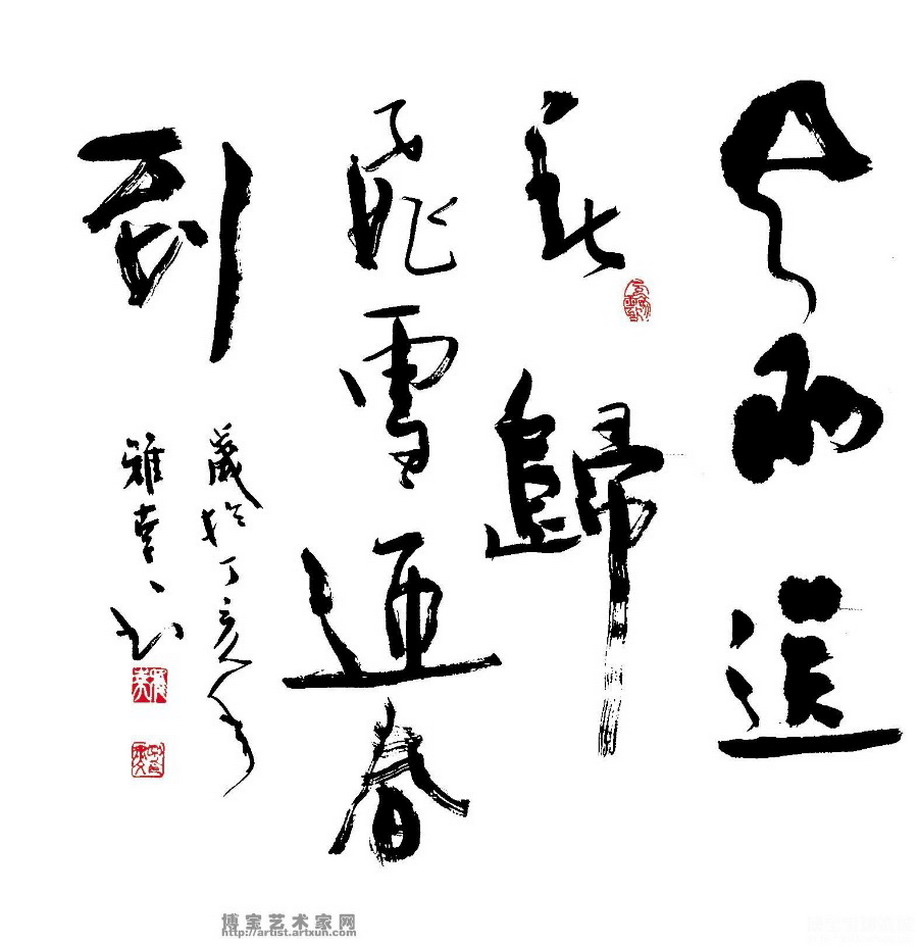 风雨送
春歸
飛雪迎春
到
歲於丁亥年
雅書
博宝艺术家网
http://artist.artxun.com